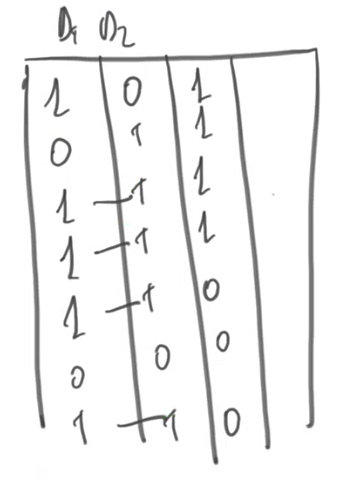 D1 D2
1 0 1
0 1 1
1 – 1 1
1 – 1 1
1 – 1 0
0 0 0
1 – 1 0